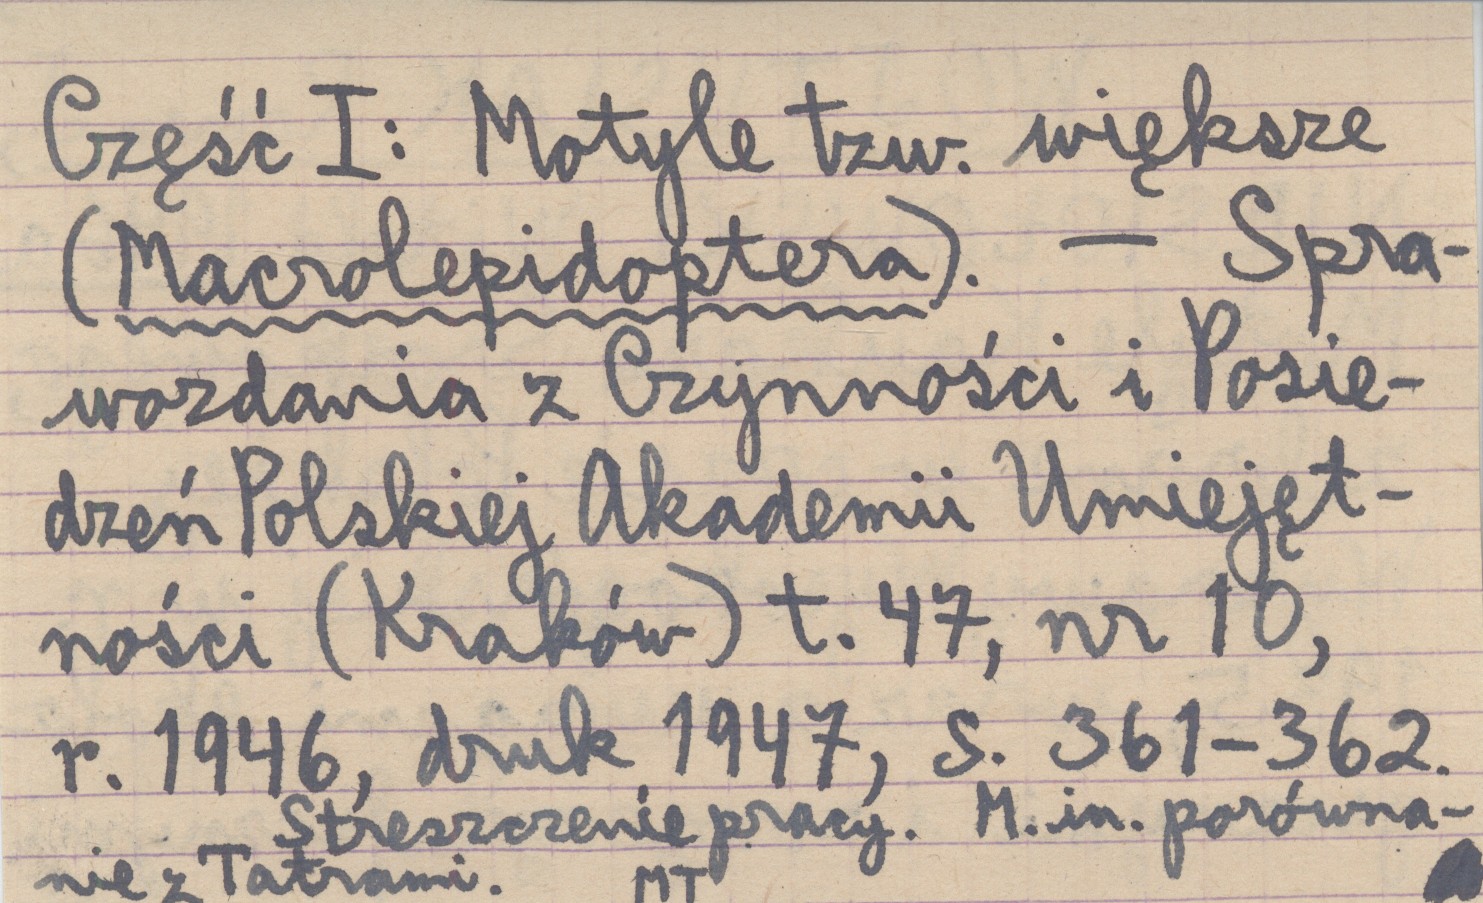 Część I: Motyle tzw. większe
(Macrolepidoptera). — Spra-
wozdania z Czynności i Posie-
dzeń Polskiej Akademii Umiejęt-
ności (Kraków) t. 47, nr 10,
r. 1946, druk 1947, s. 361-362.
Streszczenie pracy. M. in. porówna-
nie z Tatrami. MT